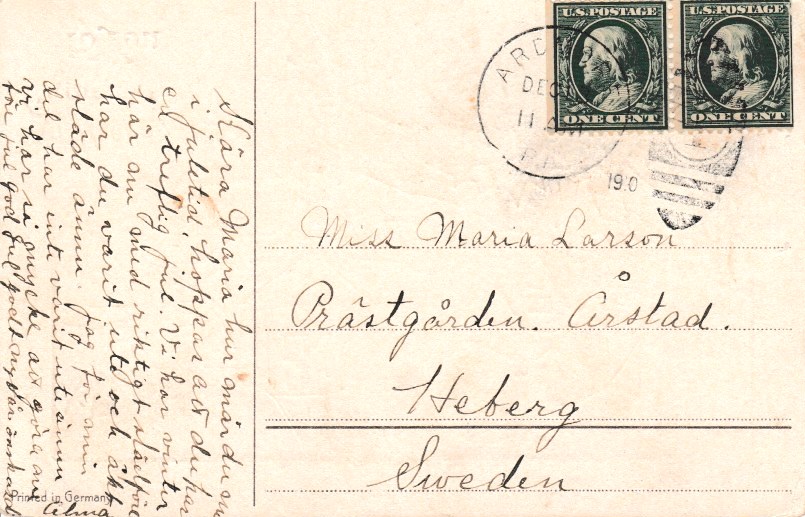 U.S. POSTAGE
ONE CENT
U.S. POSTAGE
ONE CENT
DEC
11 AM
1910
Miss Maria Larson
Prästgården. Årstad.
Heberg
Sweden
Kära Maria hur mår du nu
i juletid, hoppas att du har
en treflig jul. Vi har vinter
här nu med riktigt slädföre
har du varit ute och åkt
släde ännu. Jag för min
del har inte varit ute ännu
Vi har så mycke att göra nu
för jul god jul godt nytt år önskar
Alma
Printed in Germany